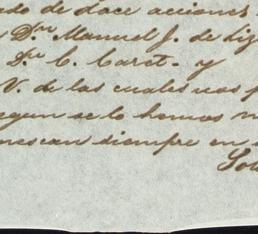 de doce acciones
Dn. Manuel J. de
Dn. C. Caret. y
V. de las cuales nos
segun se lo hemos
nescan siempre en